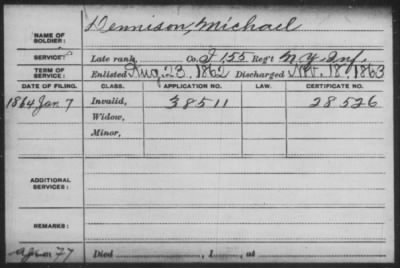 Dennison, Michael
NAME OF SOLDIER:
SERVICE: Late rank, Co. I 155 Reg't N.Y. Inf.
TERM OF SERVICE: Enlisted Aug. 23, 1862 Discharged Nov. 18, 1863
DATE OF FILING. CLASS. APPLICATION NO. LAW. CERTIFICATE NO.
1864 Jan. 7 Invalid, 38511 28526
Widow,
Minor,
ADDITIONAL SERVICES:
REMARKS:
77 Died , 1 , at